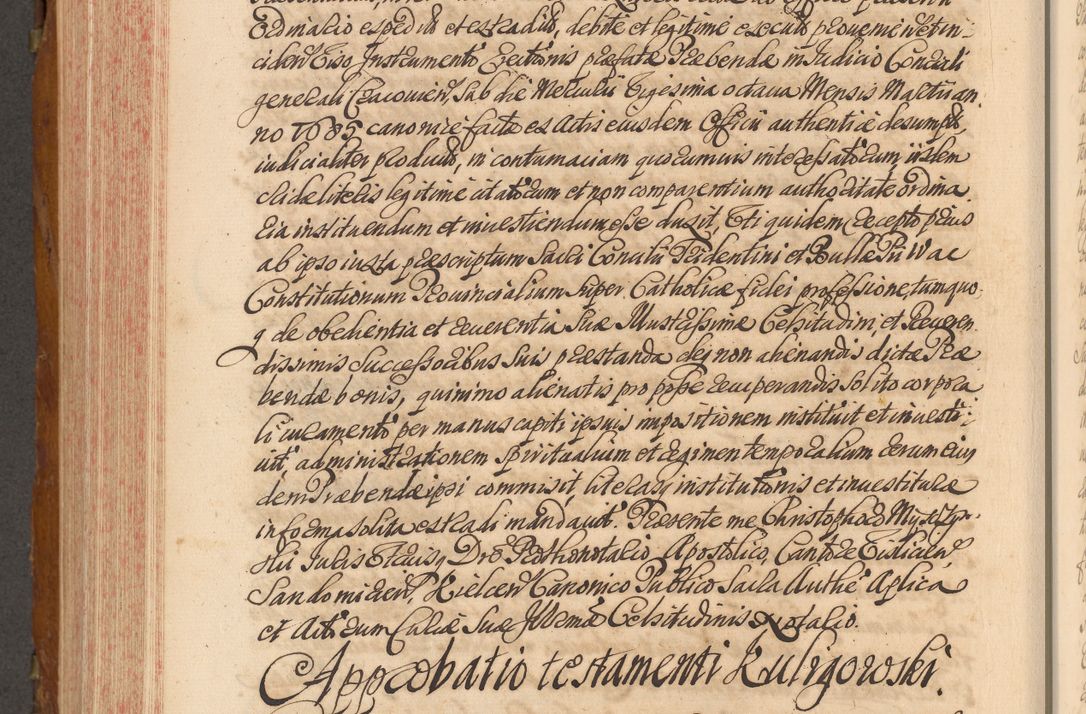 Ordinario expeditu et extraditu, debite et legitime executo provenien et in-
ciden Eiso Instrumento Erectionis præfatæ Præbendæ in Judicio Consiali
generali Cracovien, Sub die Mercurii Vigesima octava Mensis Martii an
no 1685 canonice facte ex Actis eiusdem Officii authentice desumpti,
iudicialiter producto, in contumaciam quorumvis interessatorum iisdem
cridæ literis legitime citatorum et non comparentium authoritate ordina
ria instituendum et investiendum esse duxit, Et iquidem Recepto prius
ab ipso iuxta præscriptum Sacri Concilii Tridentini et Bullæ Pii IV ac
Constitutionum Provincialium super Catholicæ fidei professione, tum quo
q de obedientia et reverentia Suæ Illustrissimæ Celsitudini, et Reveren
dissimis Successoribus Suis præstanda deq non alienandis dictæ Præ
bendæ bonis, quinimo alienatis pro posse recuperandis solito corpora
li iuramento per manus capiti ipsius impositionem instituit et investi-
vit, administrationem Spiritualium et regimen temporalium earum eius
dem Præbendæ ipsi commisit, literasq institutionis et investituræ
in forma solita extradi mandavit. Præsente me Christophoro Myszczyn-
ski Juris Utriusq Dre Prothonotario Apostolico, Cantore Tidicien
Sandomirien, Kielcen Canonico Publico Sacra Authe Aplica
et Actorum Curiæ Suæ Illmæ Celsitudinis Notario.
Approbatio testamenti Kuligowski.